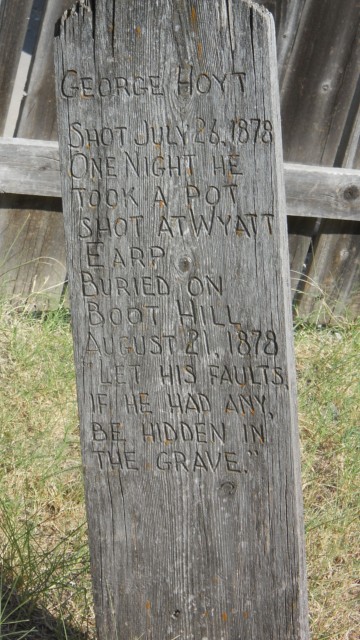 GEORGE HOYT
SHOT JULY 26, 1878
ONE NIGHT HE
TOOK A POT
SHOT AT WYATT
EARP
BURIED ON
BOOT HILL
AUGUST 21, 1878
"LET HIS FAULTS,
IF HE HAD ANY,
BE HIDDEN IN
THE GRAVE."